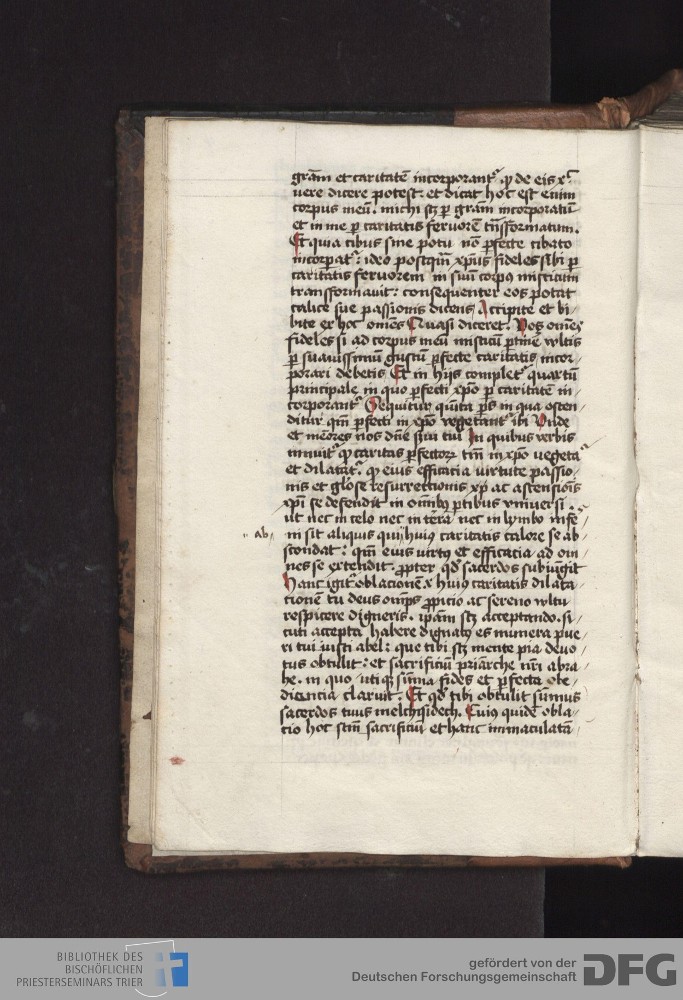 gram̄ et caritatē incorporant᷑ qͥ de eis x᷑
uere dicere potest. et dicat hoc est enim
corpus meū. michi sꝫ ꝑ gram̄ incorporatū
et in me ꝑ caritatis feruorē tn̄sformatum.
Et quia cibus sine potu nō ꝑfecte cibato
incorpat᷑: ideo postqm̄ xpus fideles sibi ꝑ
caritatis feruorem in suū corpꝯ misticum
transformauit: consequenter eos potat
calice sue passionis dicens Accipite et bi-
bite ex hoc omēs Quasi diceret. Vos omēs
fideles si ad corpus meū misticū ꝑtinē wltis
ꝑ suauissimū gustum ꝑfecte caritatis incor-
porari debetis Et in hijs complet᷑ quartū
principale in quo ꝑfecti xpo ꝑ caritatē in-
corporant᷑ Sequitur quīta ps̄ in qua osten-
ditur qm̄ ꝑfecti in xpo vegetant᷑ ibi Vnde
et mēores nos dn̄e serui tui In quibus verbis
innuit᷑ qͥ caritas ꝑfectorꝫ tm̄ in xpo vegeta-
et dilatat᷑. qͥ eius efficatia virtute passio-
nis et glōse resurrectionis xp̄i ac ascensiōis
xpi se defendit in omībꝯ ꝑtibus vniuersi.
ut nec in celo nec in terā nec in lymbo infe-
ni sit aliquis qui huiꝯ caritatis calore se ab-
scondat: qm̄ eius virtꝯ et efficatia ad om-
nes se extendit. ꝓpter qd̄ sacerdos subiūgit
Hanc igit᷑ oblationē x huiꝯ caritatis dilata-
tionē tu deus omps̄ ꝓpitio ac sereno wltu
respicere digneris. ipam̄ sꝫ acceptando. si-
cuti accepta habere dignatꝯ es munera pue-
ri tui iusti abel: que tibi sꝫ mente pia deuo-
tus obtulit: et sacrificiū priarche nr̄i abra-
he. in quo utiqꝫ sūma fides et ꝑfecta obe-
dientia claruit. Et qd̄ tibi obtulit sūmus
sacerdos tuus melchisedech. Cuius quidē obla-
tio hoc scm̄ sacrificiū et hanc immaculatā
ab
BIBLIOTHEK DES
BISCHÖFLICHEN
PRIESTERSEMINARS TRIER
gefördert von der
Deutschen Forschungsgemeinschaft
DFG